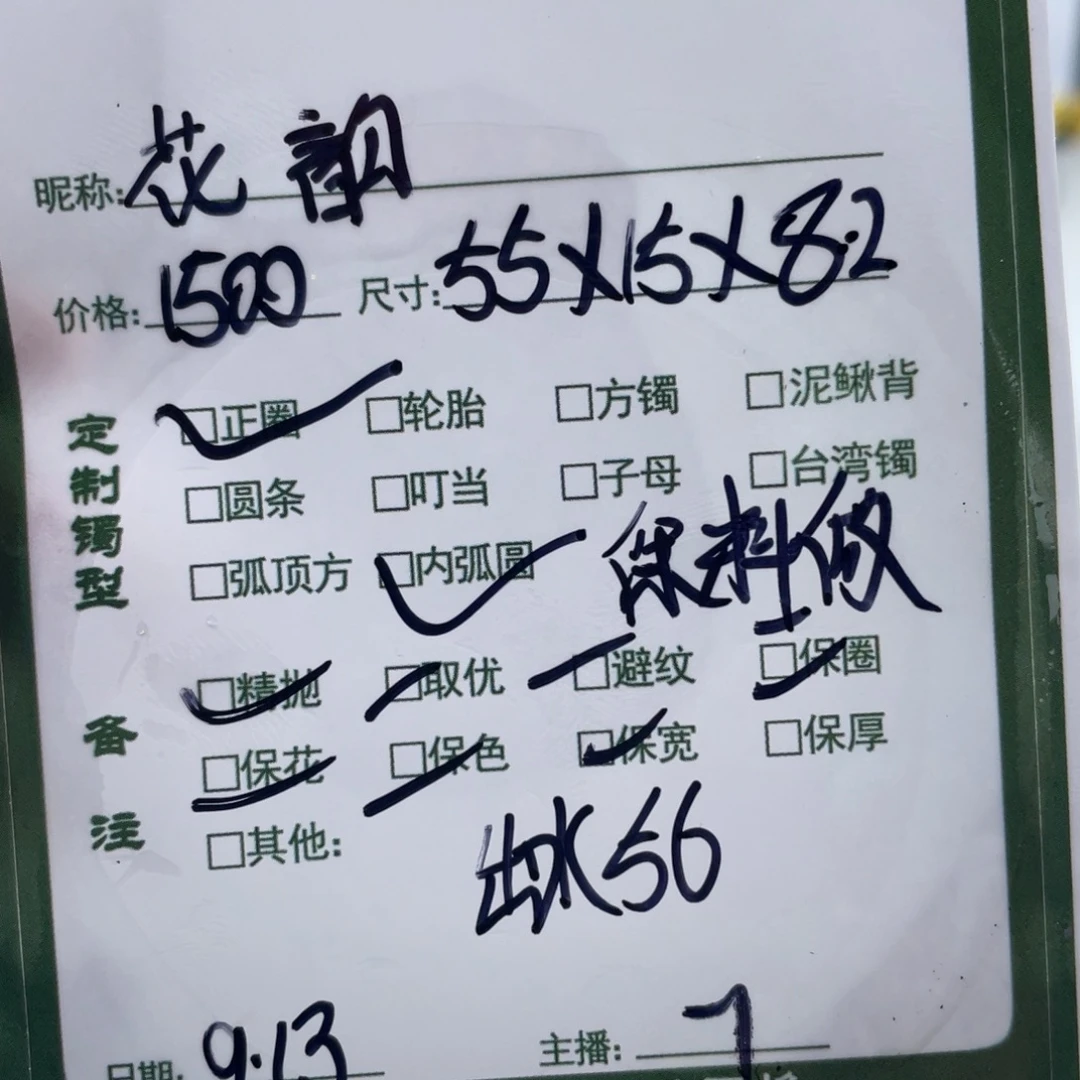 昵称:花韵
价格:1500 尺寸:55X15X8.2
定制镯型
□正圈 □轮胎 □方镯 □泥鳅背
□圆条 □叮当 □子母 □台湾镯
□弧顶方 □内弧圆 保料做
备注
□精抛 □取优 □避纹 □保圈
□保花 □保色 □保宽 □保厚
□其他: 出水56
日期: 9.13 主播: 7